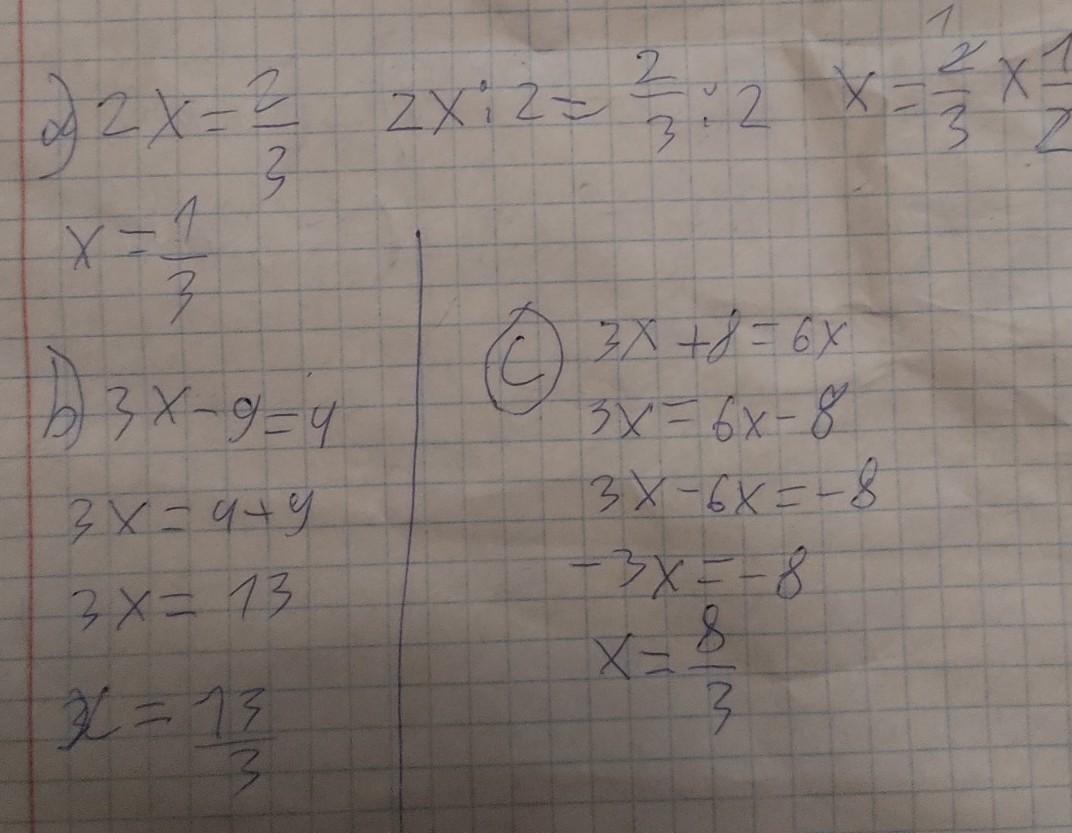 a) 2x = 2/3 2x : 2 = 2/3 : 2 x = 2/3 x 1/2
1
x = 1/3
b) 3x - 9 = 4
3x = 4 + 9
3x = 13
x = 13/3
C 3x + 8 = 6x
3x = 6x - 8
3x - 6x = -8
-3x = -8
x = 8/3